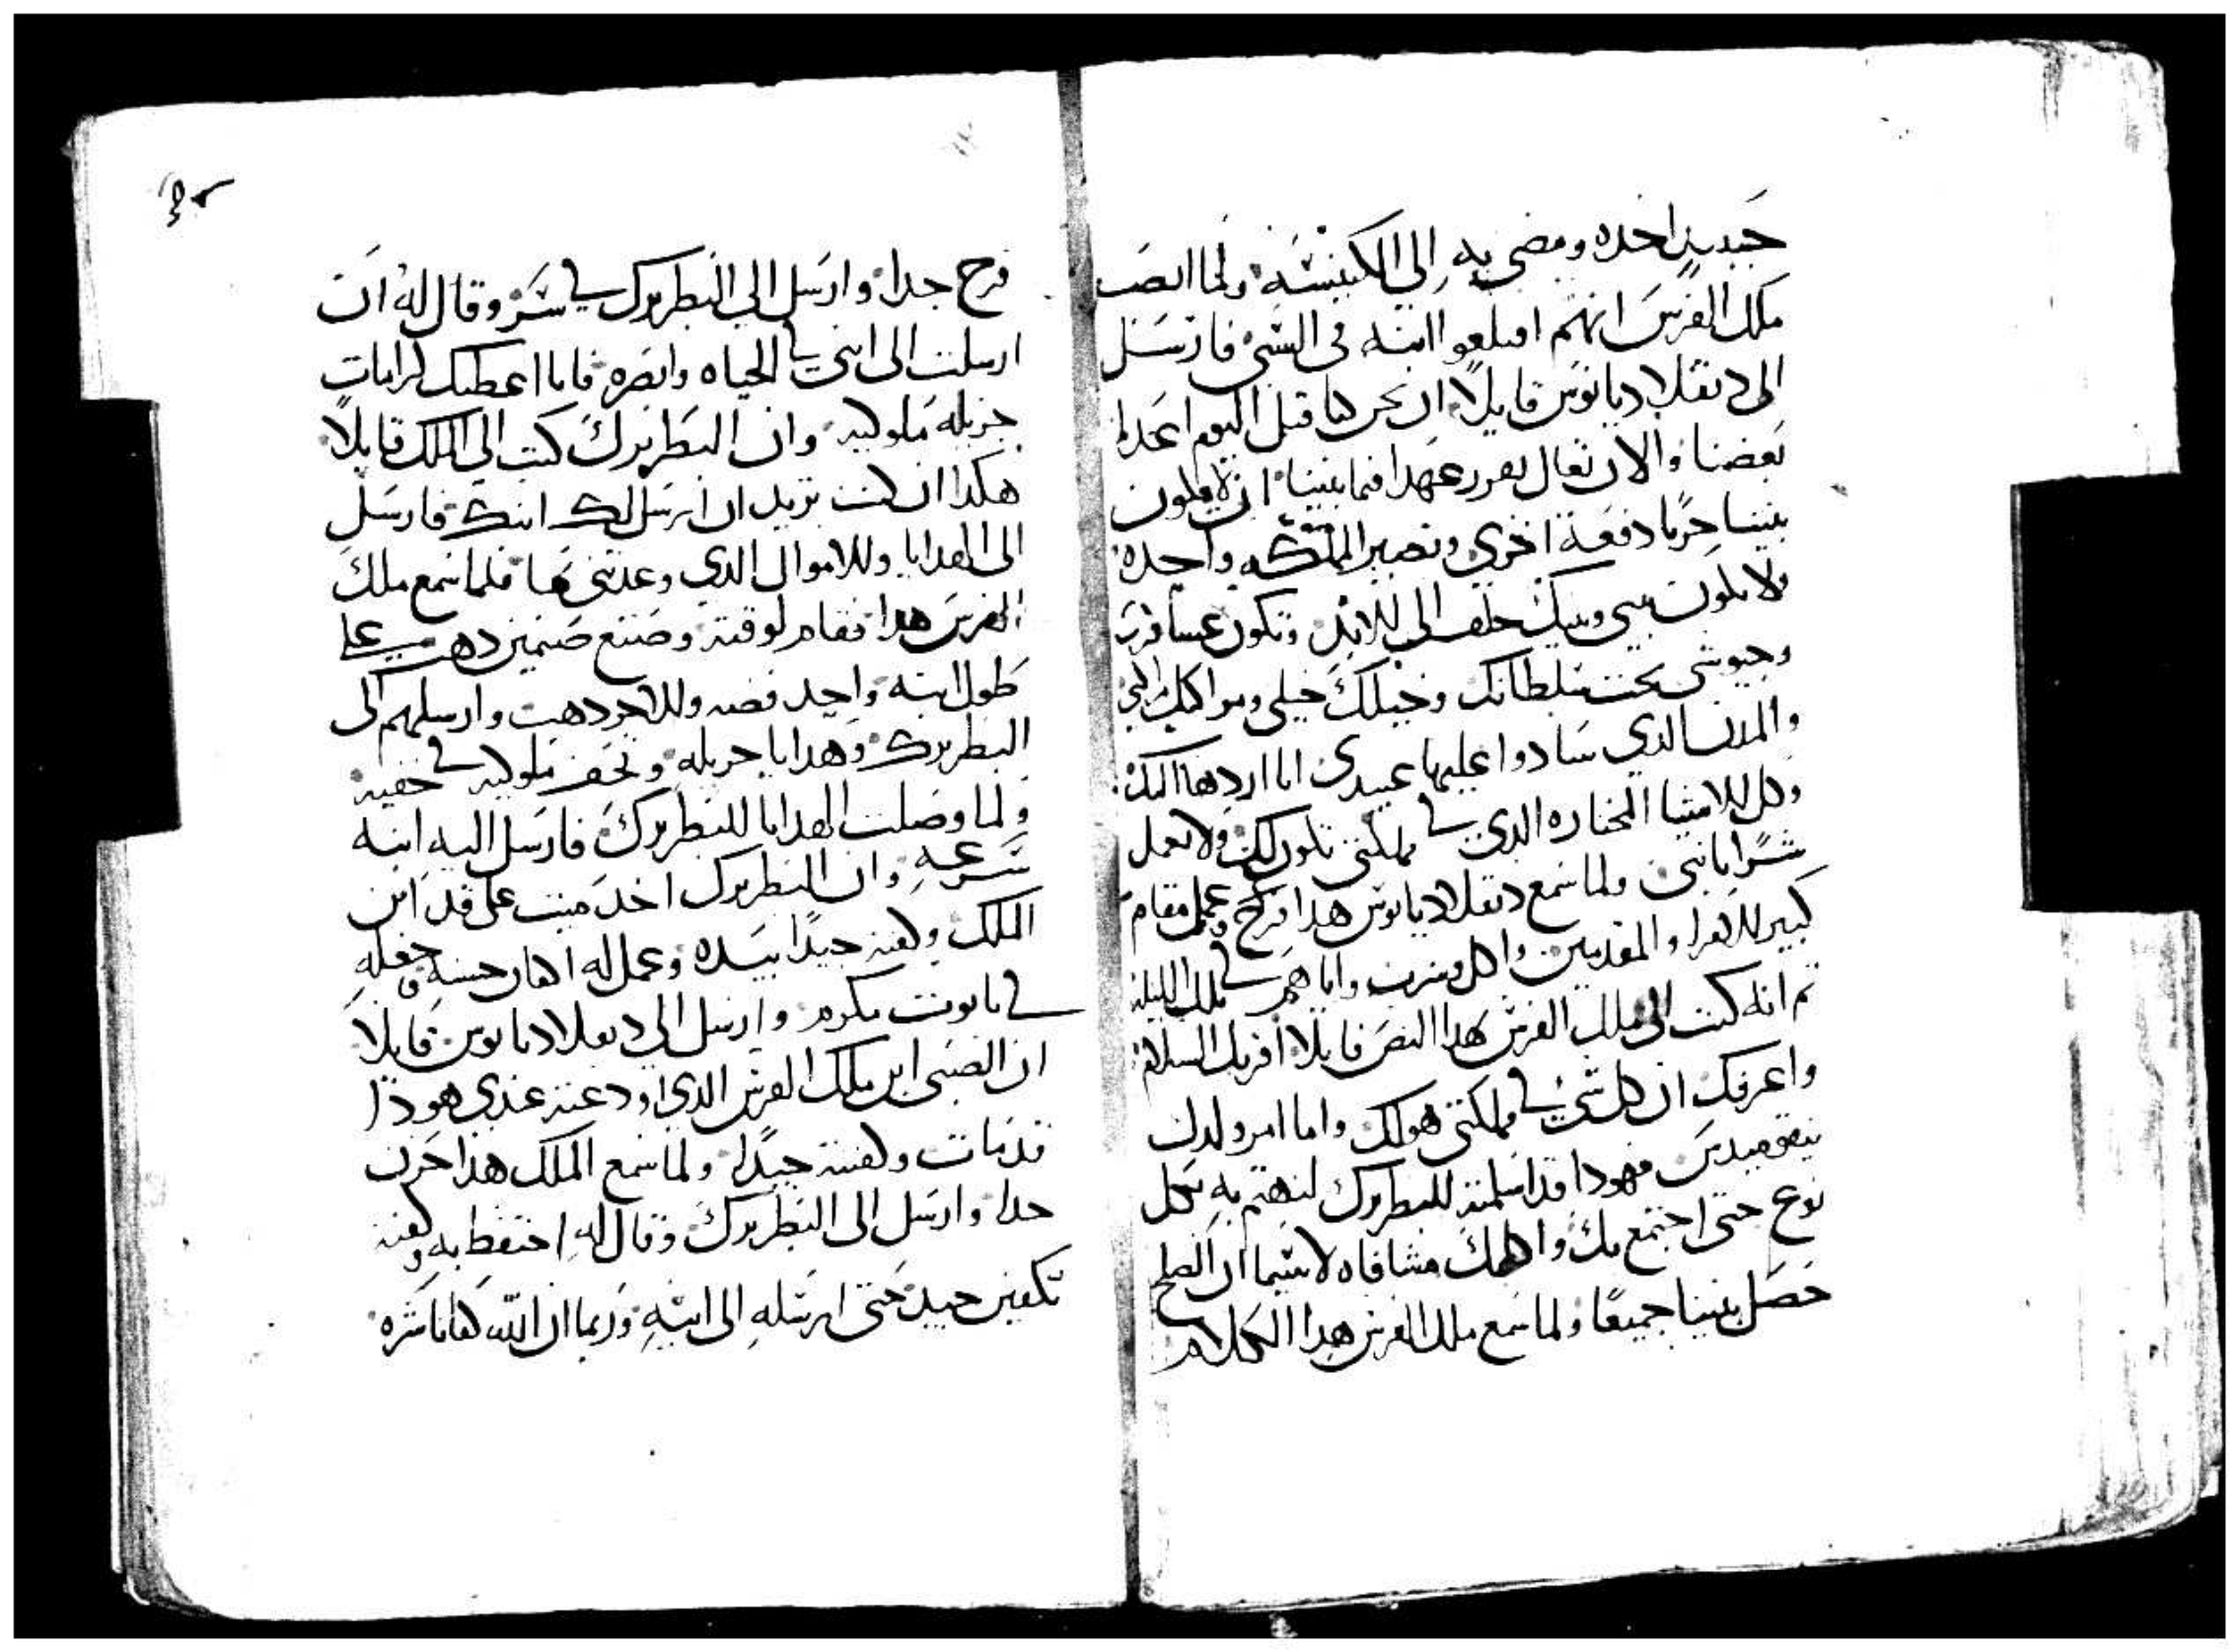 جبديد اخده ومضى به إلى الكنيسه ولما ابصر
ملك الفرس انهم امبلعوا ابنه فى السبى فارسل
الى دنقلاديانوس قايلا ان نحن كنا قبل اليوم اعدا
بعضنا والان تعال نقرر عهدا فيما بيننا ان لا يكون
بيننا حربا دفعة اخري وتصير المملكه واحده
ولا يكون بيني وبينك خلف الى الابد وتكون عساكرى
وجيوشى تحت سلطانك وخيلك خيلى ومواكبك
والمدن الدي سادوا عليها عبيدى انا اردها اليك
وكل الاشيا المختاره الدي في مملكتى تكون لك ولا تعمل
شرا بابنى ولما سمع دنقلاديانوس هدا فرح وعمل مقام
كبير للامرا والمقدمين واكل وشرب واياهم في تلك الليله
تم انه كتب الى ملك الفرس هدا النص قايلا اقريك السلام
واعرفك ان كل شى في مملكتى هو لك واما امر ولدك
نيقوميدس فهودا قد اسلمته للبطريرك ليهتم به بكل
نوع حتى اجتمع بك واكلمك مشافاه لاسيما ان الصلح
حصل بيننا جميعا ولما سمع ملك الفرس هدا الكلام
فرح جدا وارسل الي البطريرك في سر وقال له ان
ارسلت الى ابنى في الحياه وانضره فانا اعطيك كرامات
جزيله ملوكيه وان البطريرك كتب الي الملك قايلا
هكدا ان كنت تريد ان ارسل لك ابنك فارسل
الى الهدايا والاموال الدي وعدتنى بها فلما سمع ملك
الفرس هدا فقام لوقته وصنع صنمين دهب على
طول ابنه واحد فضه والاخر دهب وارسلهم الى
البطريرك وهدايا جزيله وتحف ملوكيه في خفيه
ولما وصلت الهدايا للبطريرك فارسل اليه ابنه
سرعه وان البطريرك اخد ميت على قد ابن
الملك وكفنه جيدا بيده وعمل له اكفان حسنه وجعله
في تابوت مكرم وارسل الي دنقلاديانوس قايلا
ان الصبى ابن ملك الفرس الدي اودعته عندي هودا
قد مات وكفنته جيدا ولما سمع الملك هدا حزن
جدا وارسل الى البطريرك وقال له احتفظ به وكفنه
تكفين جيد حتى ارسله الى ابيه وربما ان الله